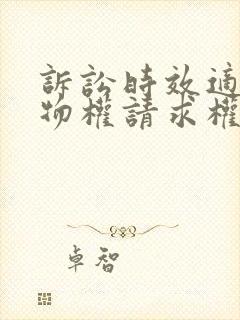 訴訟時效適
物權請求權
卓智